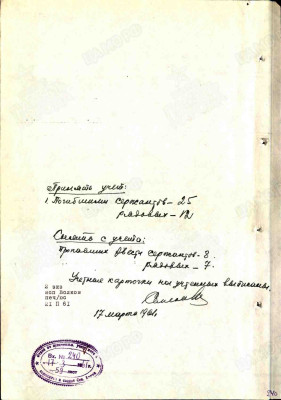 Принять учет:
1. Погибшими сержантов - 25
рядовых - 121
Снять с учета:
Пропавших б/вести сержантов - 8.
рядовых - 7.
Учетные карточки на указанных выписаны.
17 марта 1961г.
6 экз
исп Волков
печ/
21 П 61
Вх. № 240
240